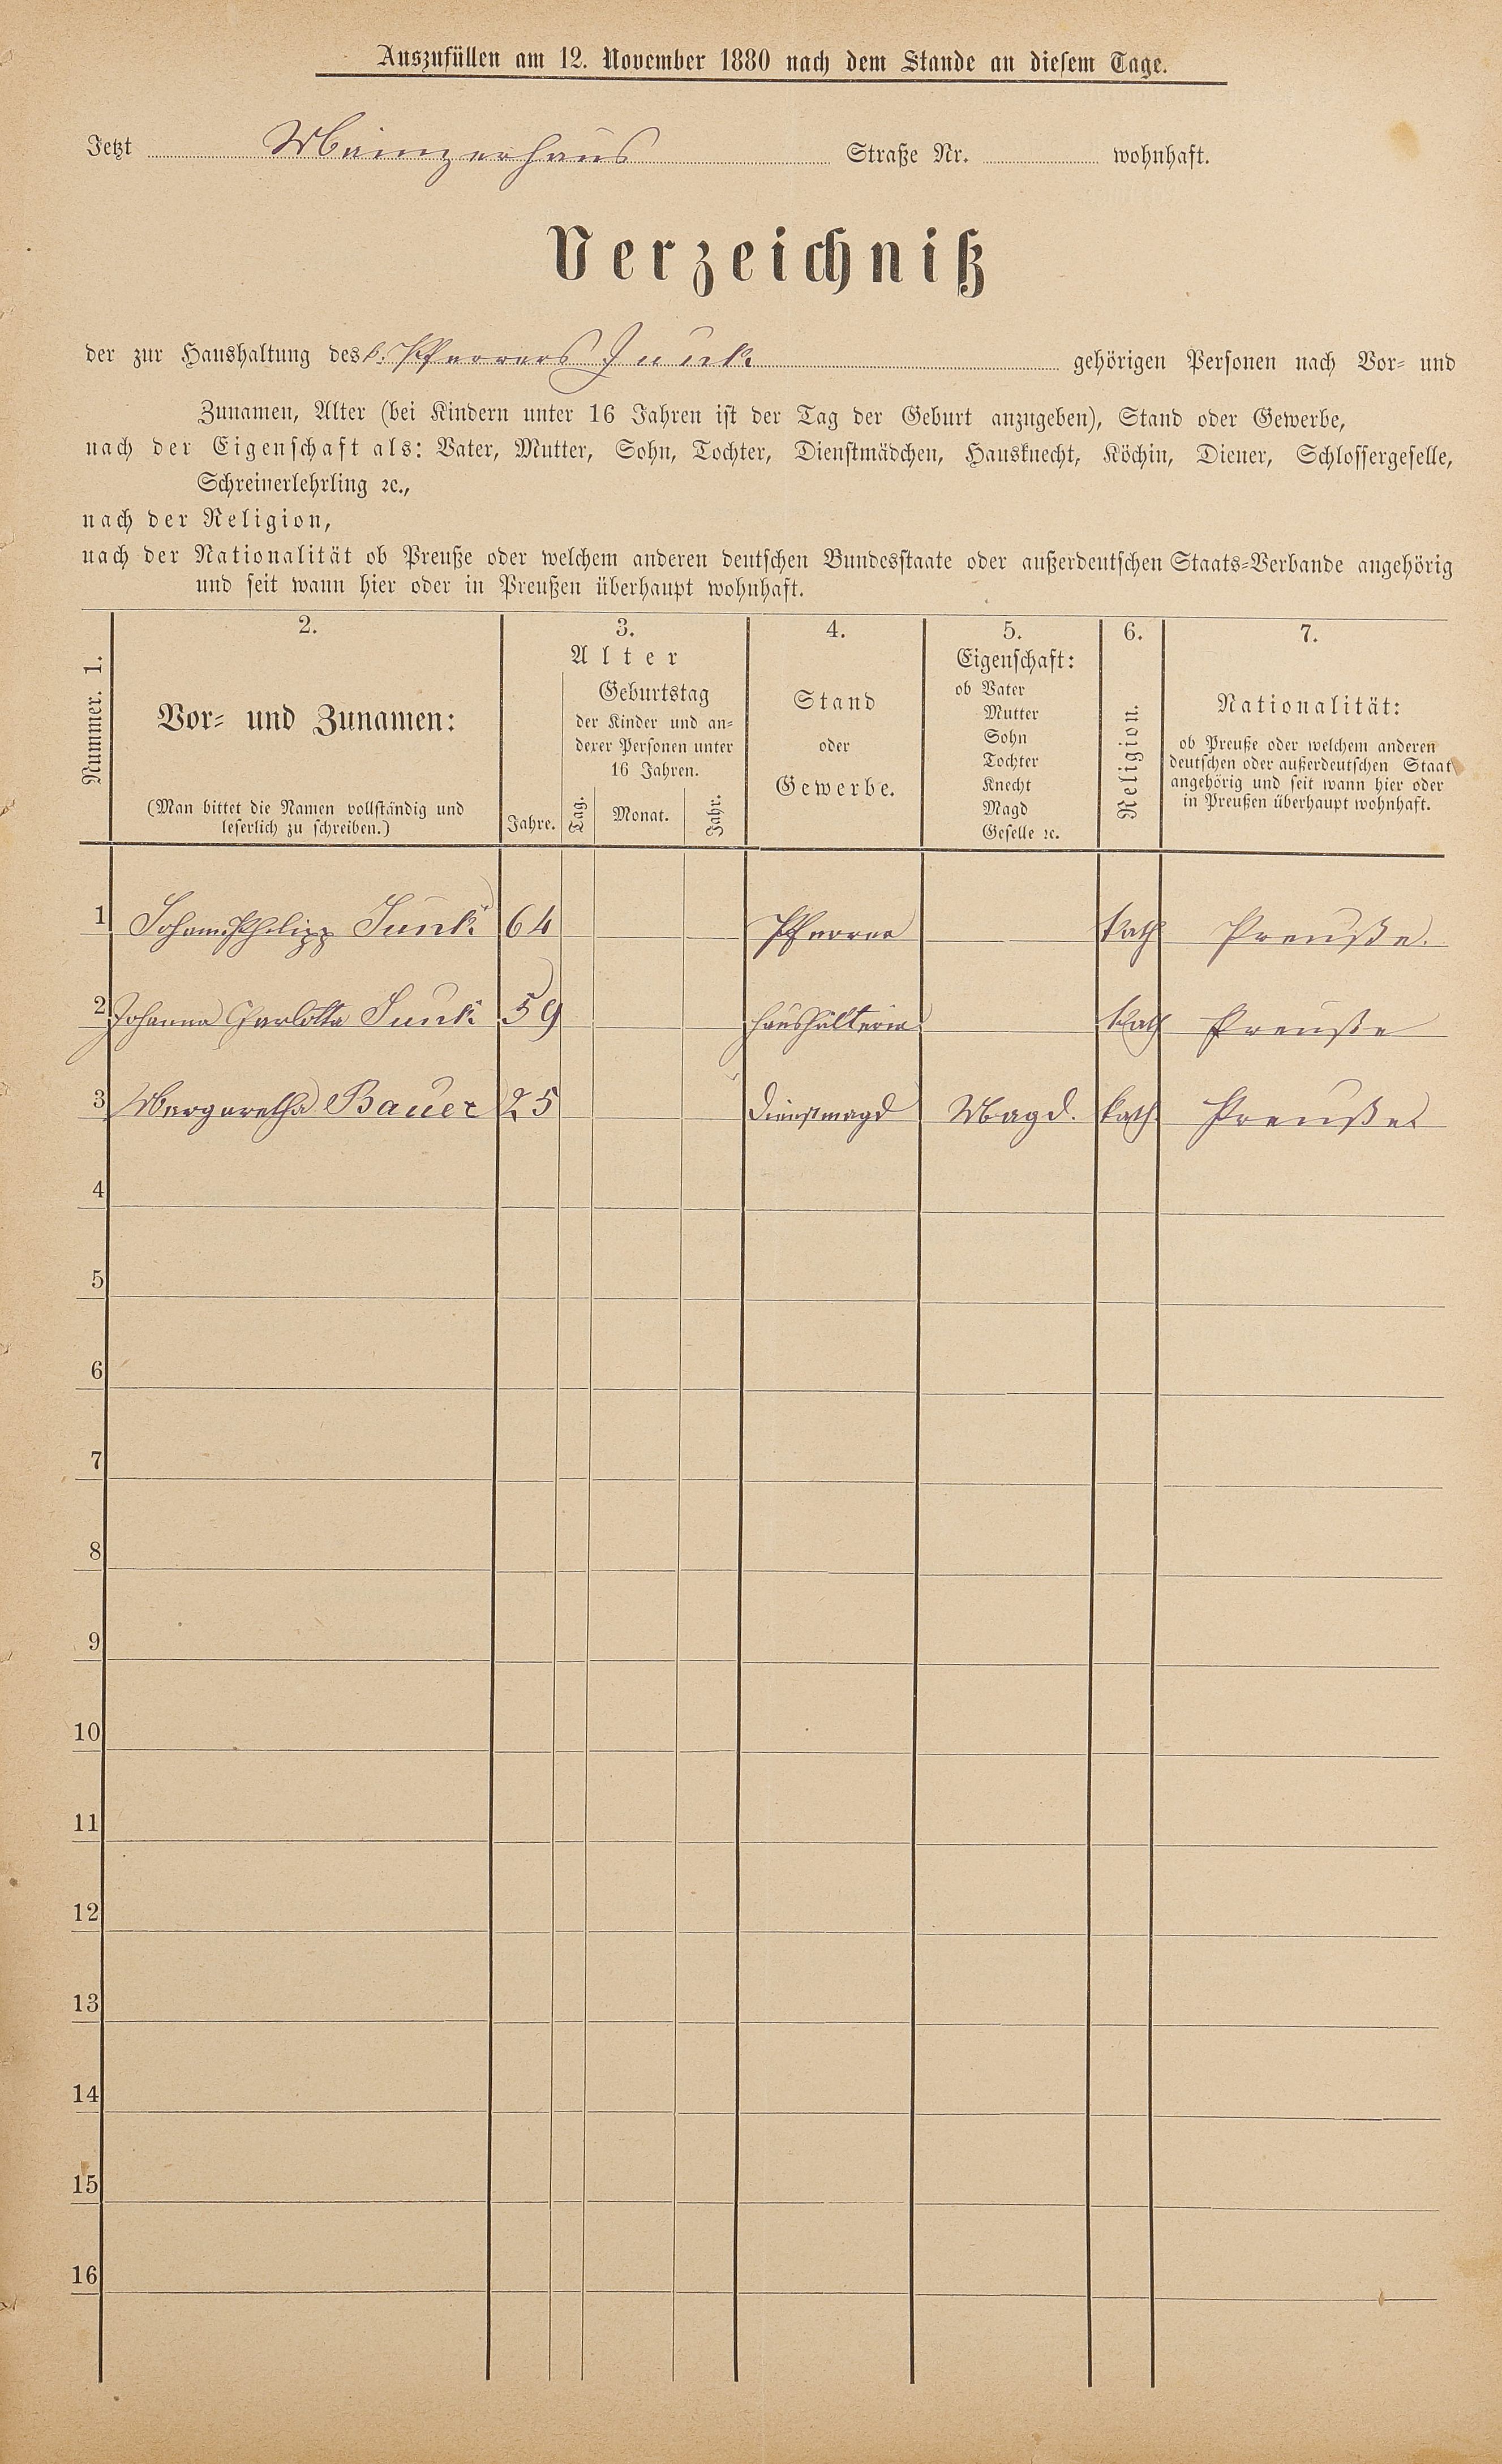 Auszufüllen am 12. November 1880 nach dem Stande an diesem Tage.
Jetzt Mainzerhaus Straße Nr. wohnhaft.
Verzeichniß
der zur Haushaltung des k. Pfarrers Junk gehörigen Personen nach Vor- und
Zunamen, Alter (bei Kindern unter 16 Jahren ist der Tag der Geburt anzugeben), Stand oder Gewerbe,
nach der Eigenschaft als: Vater, Mutter, Sohn, Tochter, Dienstmädchen, Hausknecht, Köchin, Diener, Schlossergeselle,
Schreinerlehrling ꝛc.,
nach der Religion,
nach der Nationalität ob Preuße oder welchem anderen deutschen Bundesstaate oder außerdeutschen Staats-Verbande angehörig
und seit wann hier oder in Preußen überhaupt wohnhaft.
Nummer. 1.
2.
Vor- und Zunamen:
(Man bittet die Namen vollständig und
leserlich zu schreiben.)
3.
Alter
Jahre.
Geburtstag
der Kinder und an-
derer Personen unter
16 Jahren.
Tag. Monat. Jahr.
4.
Stand
oder
Gewerbe.
5.
Eigenschaft:
ob Vater
Mutter
Sohn
Tochter
Knecht
Magd
Geselle ꝛc.
6.
Religion.
7.
Nationalität:
ob Preuße oder welchem anderen
deutschen oder außerdeutschen Staat
angehörig und seit wann hier oder
in Preußen überhaupt wohnhaft.
1 Johann Philipp Junk 64 Pfarrer kath Preuße.
2 Johanna Charlotta Junk 59 Haushälterin kath Preuße
3 Margaretha Bauer 25 Dienstmagd Magd. kath. Preuße
4
5
6
7
8
9
10
11
12
13
14
15
16